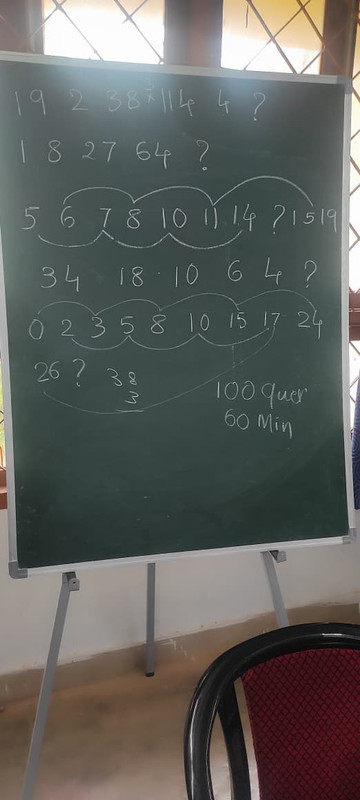 19 2 38 114 4 ?
1 8 27 64 ?
5 6 7 8 10 11 14 ? 15 19
34 18 10 6 4 ?
0 2 3 5 8 10 15 17 24
26 ? 38
3
100 Quer
60 Min